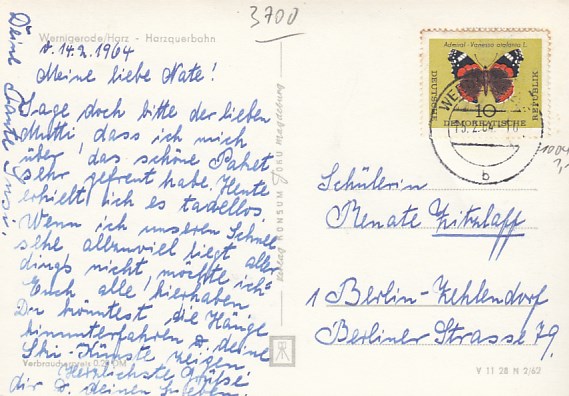 3700
Wernigerode/Harz - Harzquerbahn
d. 14.2.1964
Meine liebe Nate!
Sage doch bitte der lieben
Mutti, dass ich mich
über das schöne Paket
sehr gefreut habe. Heute
erhielt ich es tadellos.
Wenn ich unseren Schnee
sehe allzuviel liegt aller
dings nicht, möchte ich
Euch alle hierhaben
Du könntest die Hänge
hinunterfahren u. deine
Ski-Künste zeigen.
Herzlichste Grüße
dir u. deinen Lieben.
Deine Tante
Verbraucherpreis 0.20 DM
Verlag KONSUM Foku Magdeburg
Admiral · Vanessa atalanta L.
DEUTSCHE
DEMOKRATISCHE
REPUBLIK
10
WE
b
1004
Schülerin
Renate Zitzlaff
1 Berlin-Zehlendorf
Berliner Strasse 79.
V 11 28 N 2/62